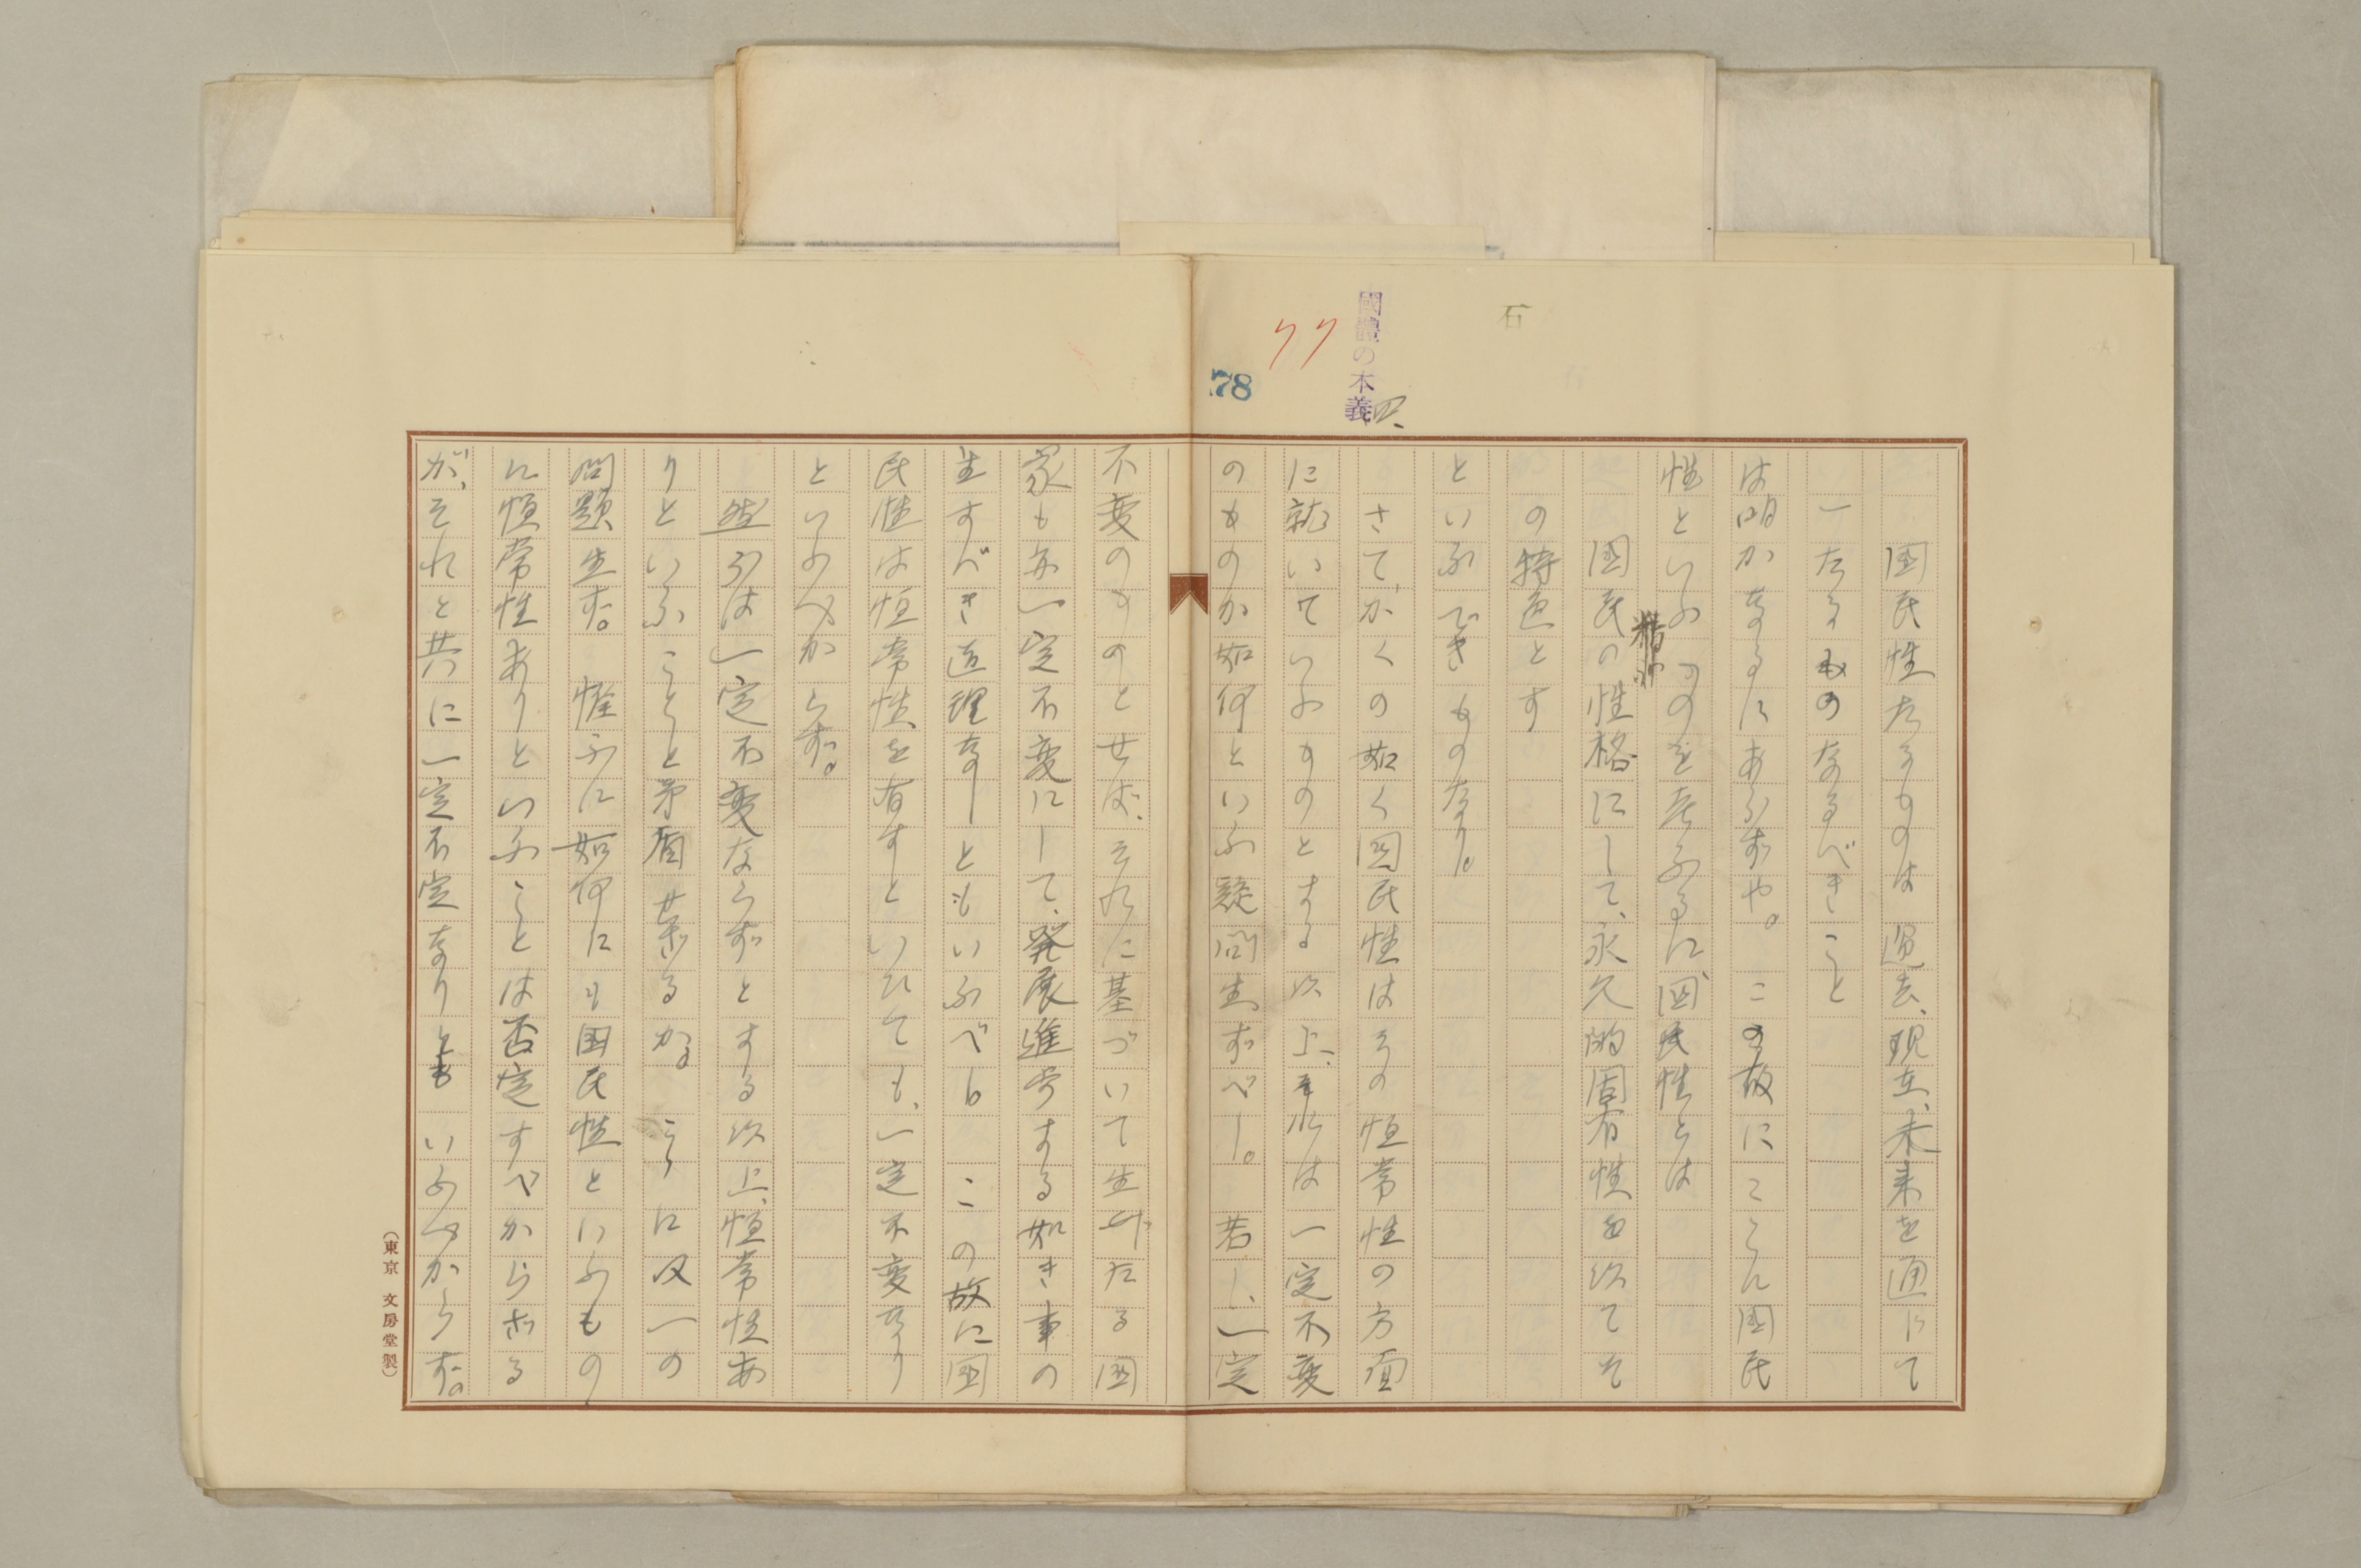 石
國體の本義
四、
77
78
国民性たるものは過去、現在、未来を通じて
一たるものなるべきこと
は明かなるにあらずや。この故にこゝに国民
性といふものを考ふるに国民性とは
国民の性格にして、永久的固有性を以てそ
の特色とす
といふべきものなり。
さて、かくの如く国民性はその恒常性の方面
に就いていふものとする以上、それは一定不変
のものか如何といふ疑問生ずべし。若し、一定
不変のものとせば、それに基づいて生れたる国
家も亦一定不変にして、発展進歩する如き事の
生すべき道理なしともいふべし この故に国
民性は恒常性を有すといひても、一定不変なり
といふべからず。
然らは一定不変ならずとする以上、恒常性あ
りといふことゝ矛盾せざるか。こゝに又一の
問題生ず。惟ふに如何にも国民性といふもの
に恒常性ありといふことは否定すべからざる
が、それと共に一定不定なりとも いふべからず。
（東京 文房堂製）